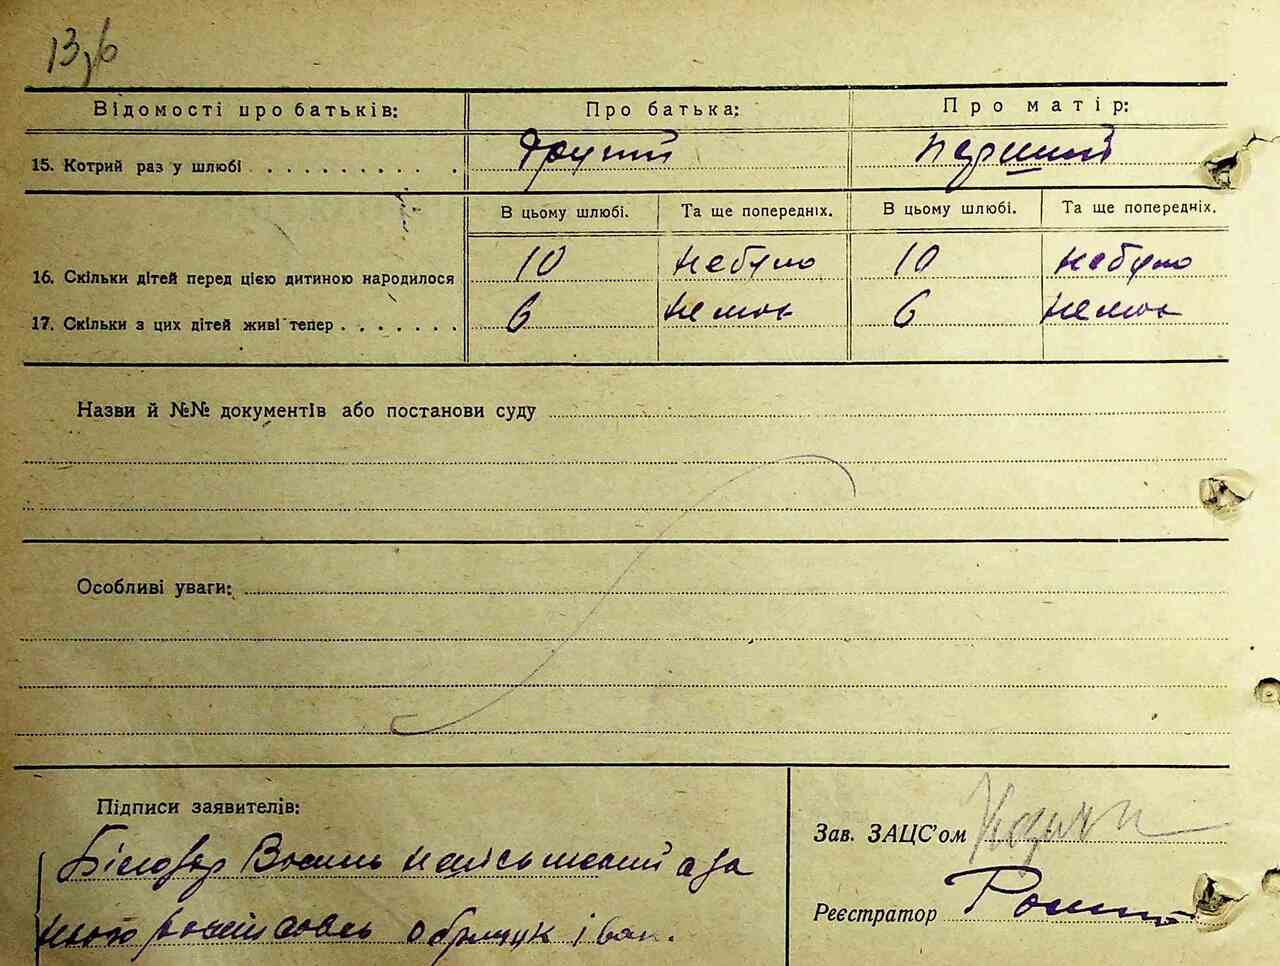 13,6
Відомості про батьків: Про батька: Про матір:
15. Котрий раз у шлюбі . . . . . . . . . . Другий перший
В цьому шлюбі. Та ще попередніх. В цьому шлюбі. Та ще попередніх.
16. Скільки дітей перед цією дитиною народилося 10 небуло 10 небуло
17. Скільки з цих дітей живі тепер . . . . . . . 6 немає 6 немає
Назви й №№ документів або постановви суду
Особливі уваги:
Підписи заявителів:
Зав. ЗАЦС’ом
Біловар Василь неписьменний а за
Реєстратор
нього росписавсь Обрищук Іван.